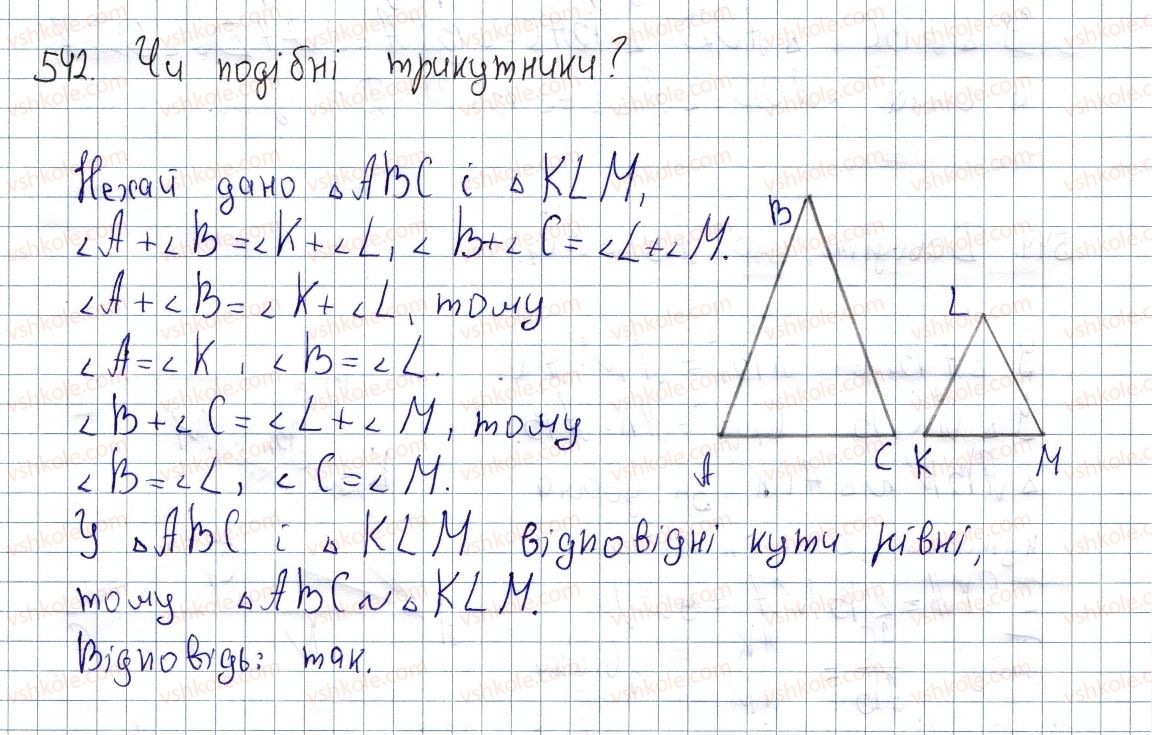 542. Чи подібні трикутники?
Нехай дано △ABC і △KLM,
∠A+∠B=∠K+∠L, ∠B+∠C=∠L+∠M.
∠A+∠B=∠K+∠L, тому
∠A=∠K, ∠B=∠L.
∠B+∠C=∠L+∠M, тому
∠B=∠L, ∠C=∠M.
У △ABC і △KLM відповідні кути рівні,
тому △ABC∾△KLM.
Відповідь: так.
B
L
A
C
K
M
vshkole.com